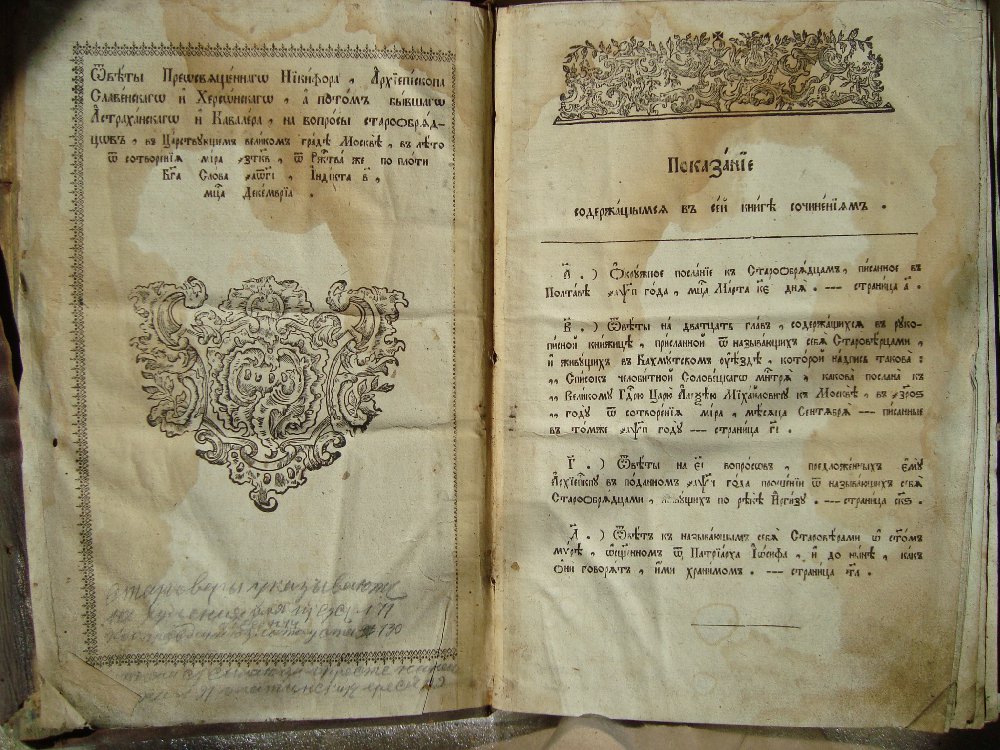 Ѿвѣты Преѡсвященнагѡ Никифора, Архіепископа
Славенскагѡ и Херсѡнскагѡ, а потомъ бывшагѡ
Астраханскагѡ и Кавалера, на вопросы старообряд-
цѡвъ, въ Царствующемъ великомъ градѣ Москвѣ, въ лѣто
ѿ сотворенія міра ҂зткв, ѿ Ржтва же по плоти
Бга Слова ҂аѡгі, Індікта в,
мца Декемвріа.
Показаніе
содержащымся въ сей книгѣ сочиненіямъ.
А.) Ѻкружное посланіе къ Старообрядцамъ, писанное въ
Полтавѣ ҂аѱп года, мца Мартаке дня. --- страница а.
В.) Ѿвѣты на дватцать главъ, содержащихся въ руко-
писной книжицѣ, присланной ѿ называющихъ себя Старовѣрцами,
и живущихъ въ Бахмутскомъ уѣздѣ, которой надпись такова:
„ Списокъ челобитной Соловецкагѡ мнтря, какова послана къ
„ Великому Гдрю Царю Алеѯѣю Міхайловичу къ Москвѣ, въ ҂зрос
„ году ѿ сотворенія міра, мѣсяца Сентября --- писанные
въ томже ҂аѱп году --- страница гі.
Г.) Ѿвѣты на еі вопросѡвъ, предложенныхъ ему
Архіепкпу въ поданномъ ҂аѱч года прошеніи ѿ называющихъ себя
Старообрядцами, живущихъ по рѣкѣ Иргизу. --- страница скѕ.
Д.) Ѿвѣтъ къ называющымъ себя Старовѣрами ѡ сѵомъ
мѵрѣ, ѡсщенномъ ѿ Патріарха Іѡсифа, и до нынѣ, какъ
они говорятъ, ими хранимомъ. --- страница тла.